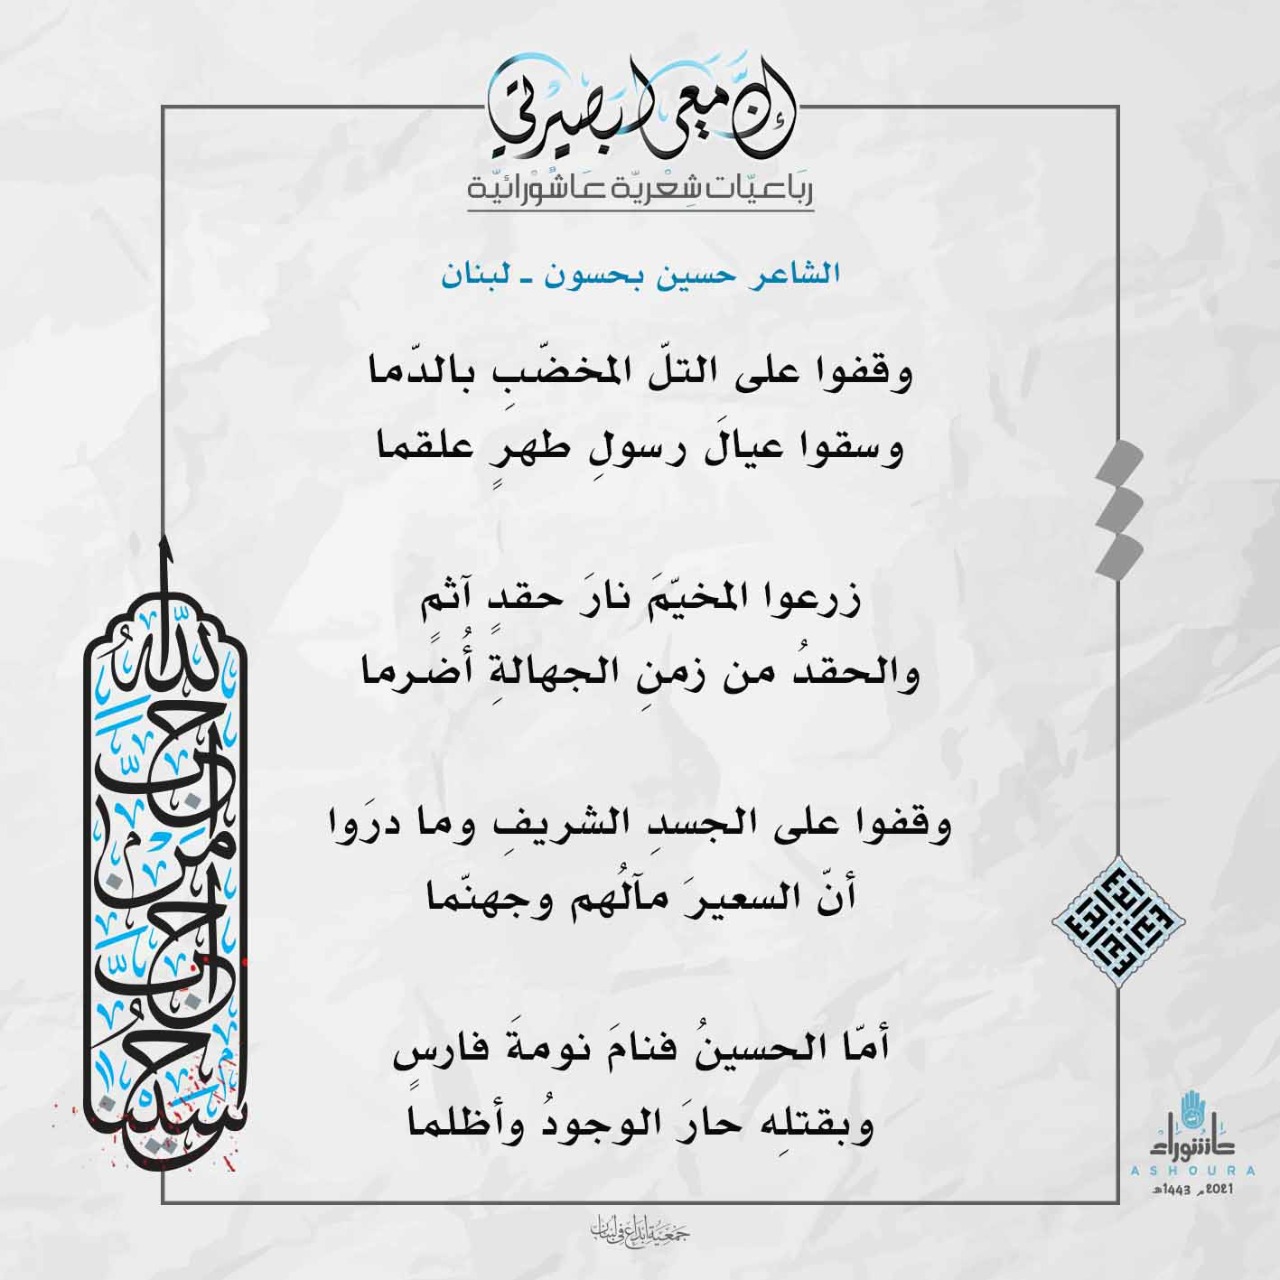 إنّ معي لبصيرتي
ربَاعيّات شِعْريّة عَاشُوْرائيّة
الشاعر حسين بحسون ـ لبنان
وقفوا على التلّ المخضّبِ بالدّما
وسقوا عيالَ رسولِ طهرٍ علقما
زرعوا المخيّمَ نارَ حقدٍ آثمٍ
والحقدُ من زمنِ الجهالةِ أُضرما
وقفوا على الجسدِ الشريفِ وما درَوا
أنّ السعيرَ مآلُهم وجهنّما
أمّا الحسينُ فنامَ نومةَ فارسٍ
وبقتلِه حارَ الوجودُ وأظلما
أحب الله من أحب حسينا
عاشوراء
ASHOURA
2021م 1443هـ
جمعية إبداع في لبنان